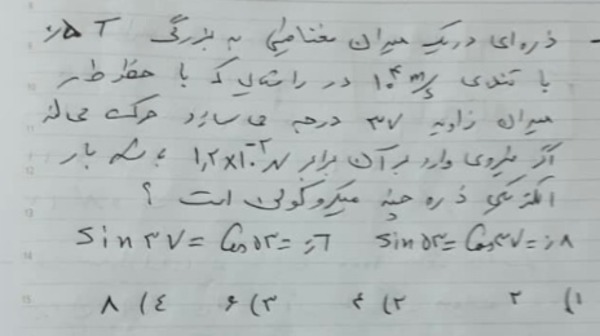 - ذره‌ای در یک میدان مغناطیسی به بزرگی ۰٫۵ T
با تندی ۱۰^۴ m/s در راستایی که با خطوط
میدان زاویه ۳۷ درجه می سازد حرکت می‌کند
اگر نیروی وارد بر آن برابر ۱٫۲×۱۰^-۲ N باشد بار
الکتریکی ذره چند میکروکولن است ؟
Sin ۳۷ = Cos ۵۳ = ۰٫۶   Sin ۵۳ = Cos ۳۷ = ۰٫۸
۱) ۲   ۲) ۴   ۳) ۶   ۴) ۸